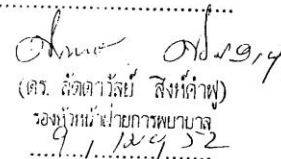 (ดร. ลัดดาวัลย์ สิงห์คำฟู)
รองหัวหน้าฝ่ายการพยาบาล
9 / เมษ 52